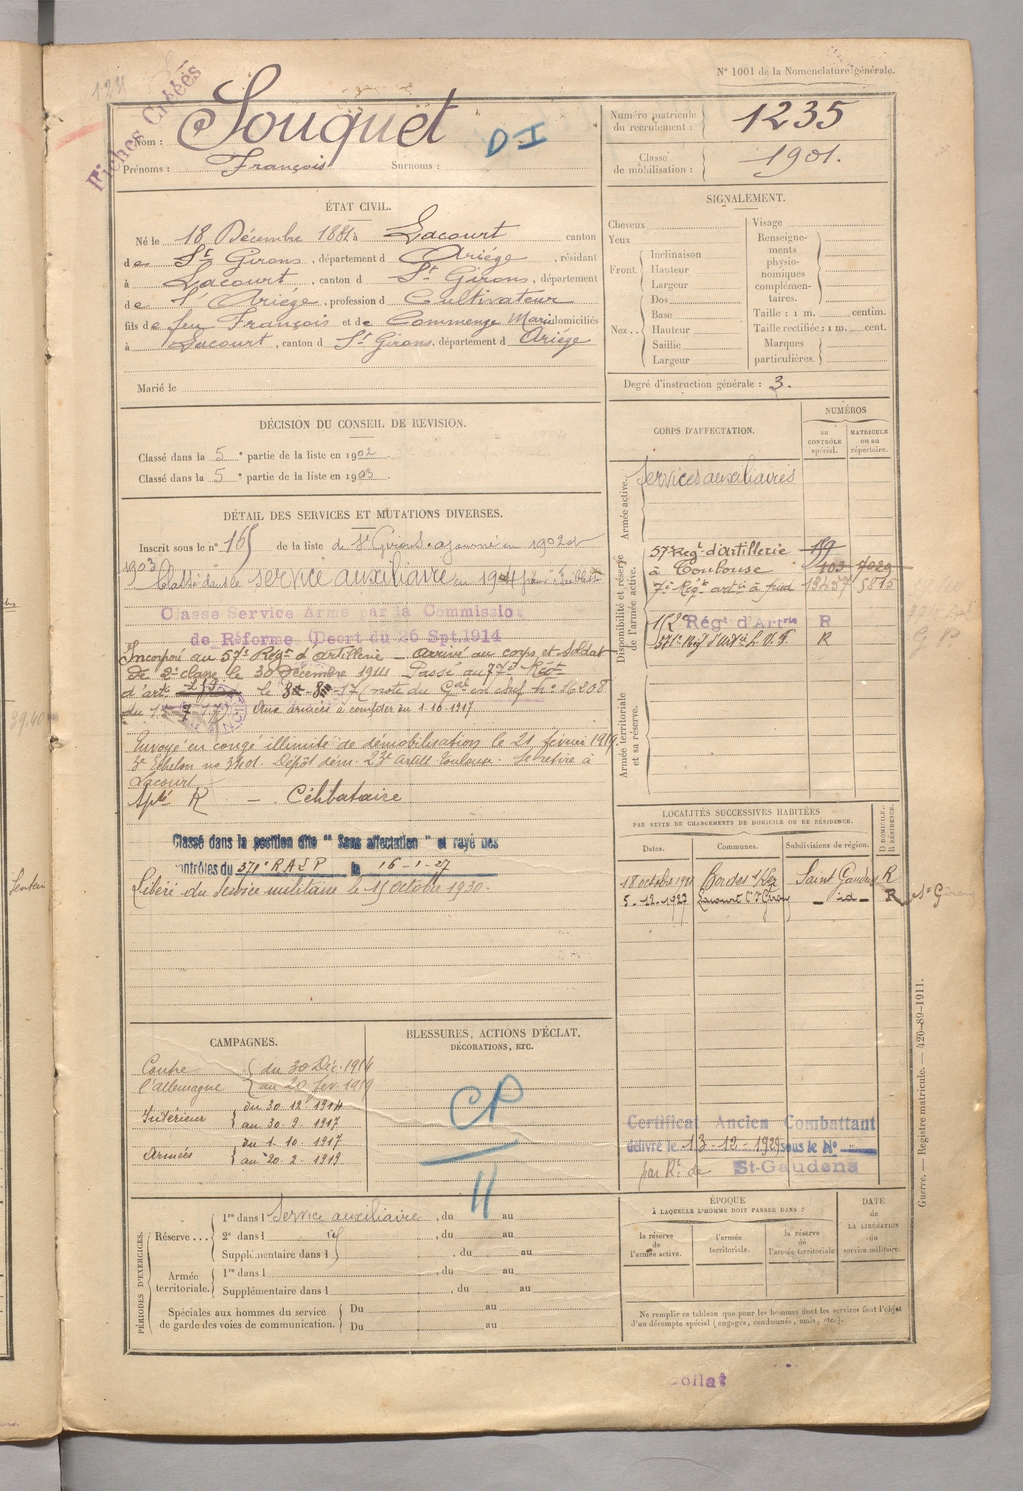 N° 1001 de la Nomenclature générale.
Fiches Croisées
Nom : Souquet
D-I
Prénoms : François Surnoms :
Numéro matricule du recrutement : 1235
Classe de mobilisation : 1901.
ÉTAT CIVIL.
Né le 18 Décembre 1881 à Lacourt canton
de St Girons, département d Ariége, résidant
à Lacourt, canton d St Girons, département
de l'Ariége, profession d Cultivateur
fils de feu François et de Commenge Marie domiciliés
à Lacourt, canton d St Girons, département d Ariége
Marié le
SIGNALEMENT.
Cheveux
Yeux
Front. Inclinaison
Hauteur
Largeur
Nez.. Dos
Base
Hauteur
Saillie
Largeur
Visage
Renseignements physionomiques complémentaires.
Taille : 1 m. centim.
Taille rectifiée : 1 m. cent.
Marques particulières.
Degré d'instruction générale : 3.
DÉCISION DU CONSEIL DE REVISION.
Classé dans la 5e partie de la liste en 1902
Classé dans la 5e partie de la liste en 1903
CORPS D'AFFECTATION.
NUMÉROS
au CONTRÔLE spécial.
MATRICULE ou au répertoire.
Armée active.
Services auxiliaires
Disponibilité et réserve de l'armée active.
57e Régt d'Artillerie 159
à Toulouse 103 7029
7e Régt artie à pied 13237 5815
112 Régt d'Artrie R
371e Régt d'Artie L.V.F R
Armée territoriale et sa réserve.
DÉTAIL DES SERVICES ET MUTATIONS DIVERSES.
Inscrit sous le n° 165 de la liste de St Girons. ajourné en 1902 et
1903 Classé dans le service auxiliaire en 1904 pour faiblesse
Classé Service Armé par la Commission
de Réforme (Décret du 26 Spt. 1914
Incorporé au 57e Régt d'artillerie - arrivé au corps et soldat
de 2e classe le 30 Décembre 1914 Passé au 77e Régt
d'artie le 8-17 (note du Gal en chef n° 16208
du 1-7-17) Aux armées à compter du 1-10-1917
Envoyé en congé illimité de démobilisation le 21 février 1919.
3e Echelon no 3401. Dépôt dém. 23e artill. Toulouse. Se retire à
Lacourt
Apté R - Célibataire
Classé dans la position dite "Sans affectation" et rayé des
contrôles du 371e RALP le 16-1-27
Libéré du service militaire le 15 octobre 1930.
LOCALITÉS SUCCESSIVES HABITÉES
PAR SUITE DE CHANGEMENTS DE DOMICILE OU DE RÉSIDENCE.
Dates. Communes. Subdivisions de région. D DOMICILE. R RÉSIDENCE.
18 octobre 1921 Bordes s/Lez Saint Gaudens R
5-12-1927 Lacourt Con St Girons - id - R St Girons
CAMPAGNES.
Contre l'Allemagne { du 30 Déc. 1914
au 20 fév. 1919
Intérieur { du 30-12-1914
au 30-9-1917
Armées { du 1-10-1917
au 20-2-1919
BLESSURES, ACTIONS D'ÉCLAT,
DÉCORATIONS, ETC.
CP
11
Certificat Ancien Combattant
délivré le 13-12-1929 sous le N°
par Rt de St-Gaudens
PÉRIODES D'EXERCICES.
Réserve... 1re dans l Service auxiliaire, du au
2e dans l id, du au
Supplémentaire dans l , du au
Armée territoriale. 1re dans l , du au
Supplémentaire dans l , du au
Spéciales aux hommes du service de garde des voies de communication. Du au
Du au
ÉPOQUE
À LAQUELLE L'HOMME DOIT PASSER DANS :
la réserve de l'armée active.
l'armée territoriale.
la réserve de l'armée territoriale
DATE de LA LIBÉRATION du service militaire.
Ne remplir ce tableau que pour les hommes dont les services font l'objet
d'un décompte spécial (engagés, condamnés, omis, etc.).
Guerre. — Registre matricule. — 426-89-1911.